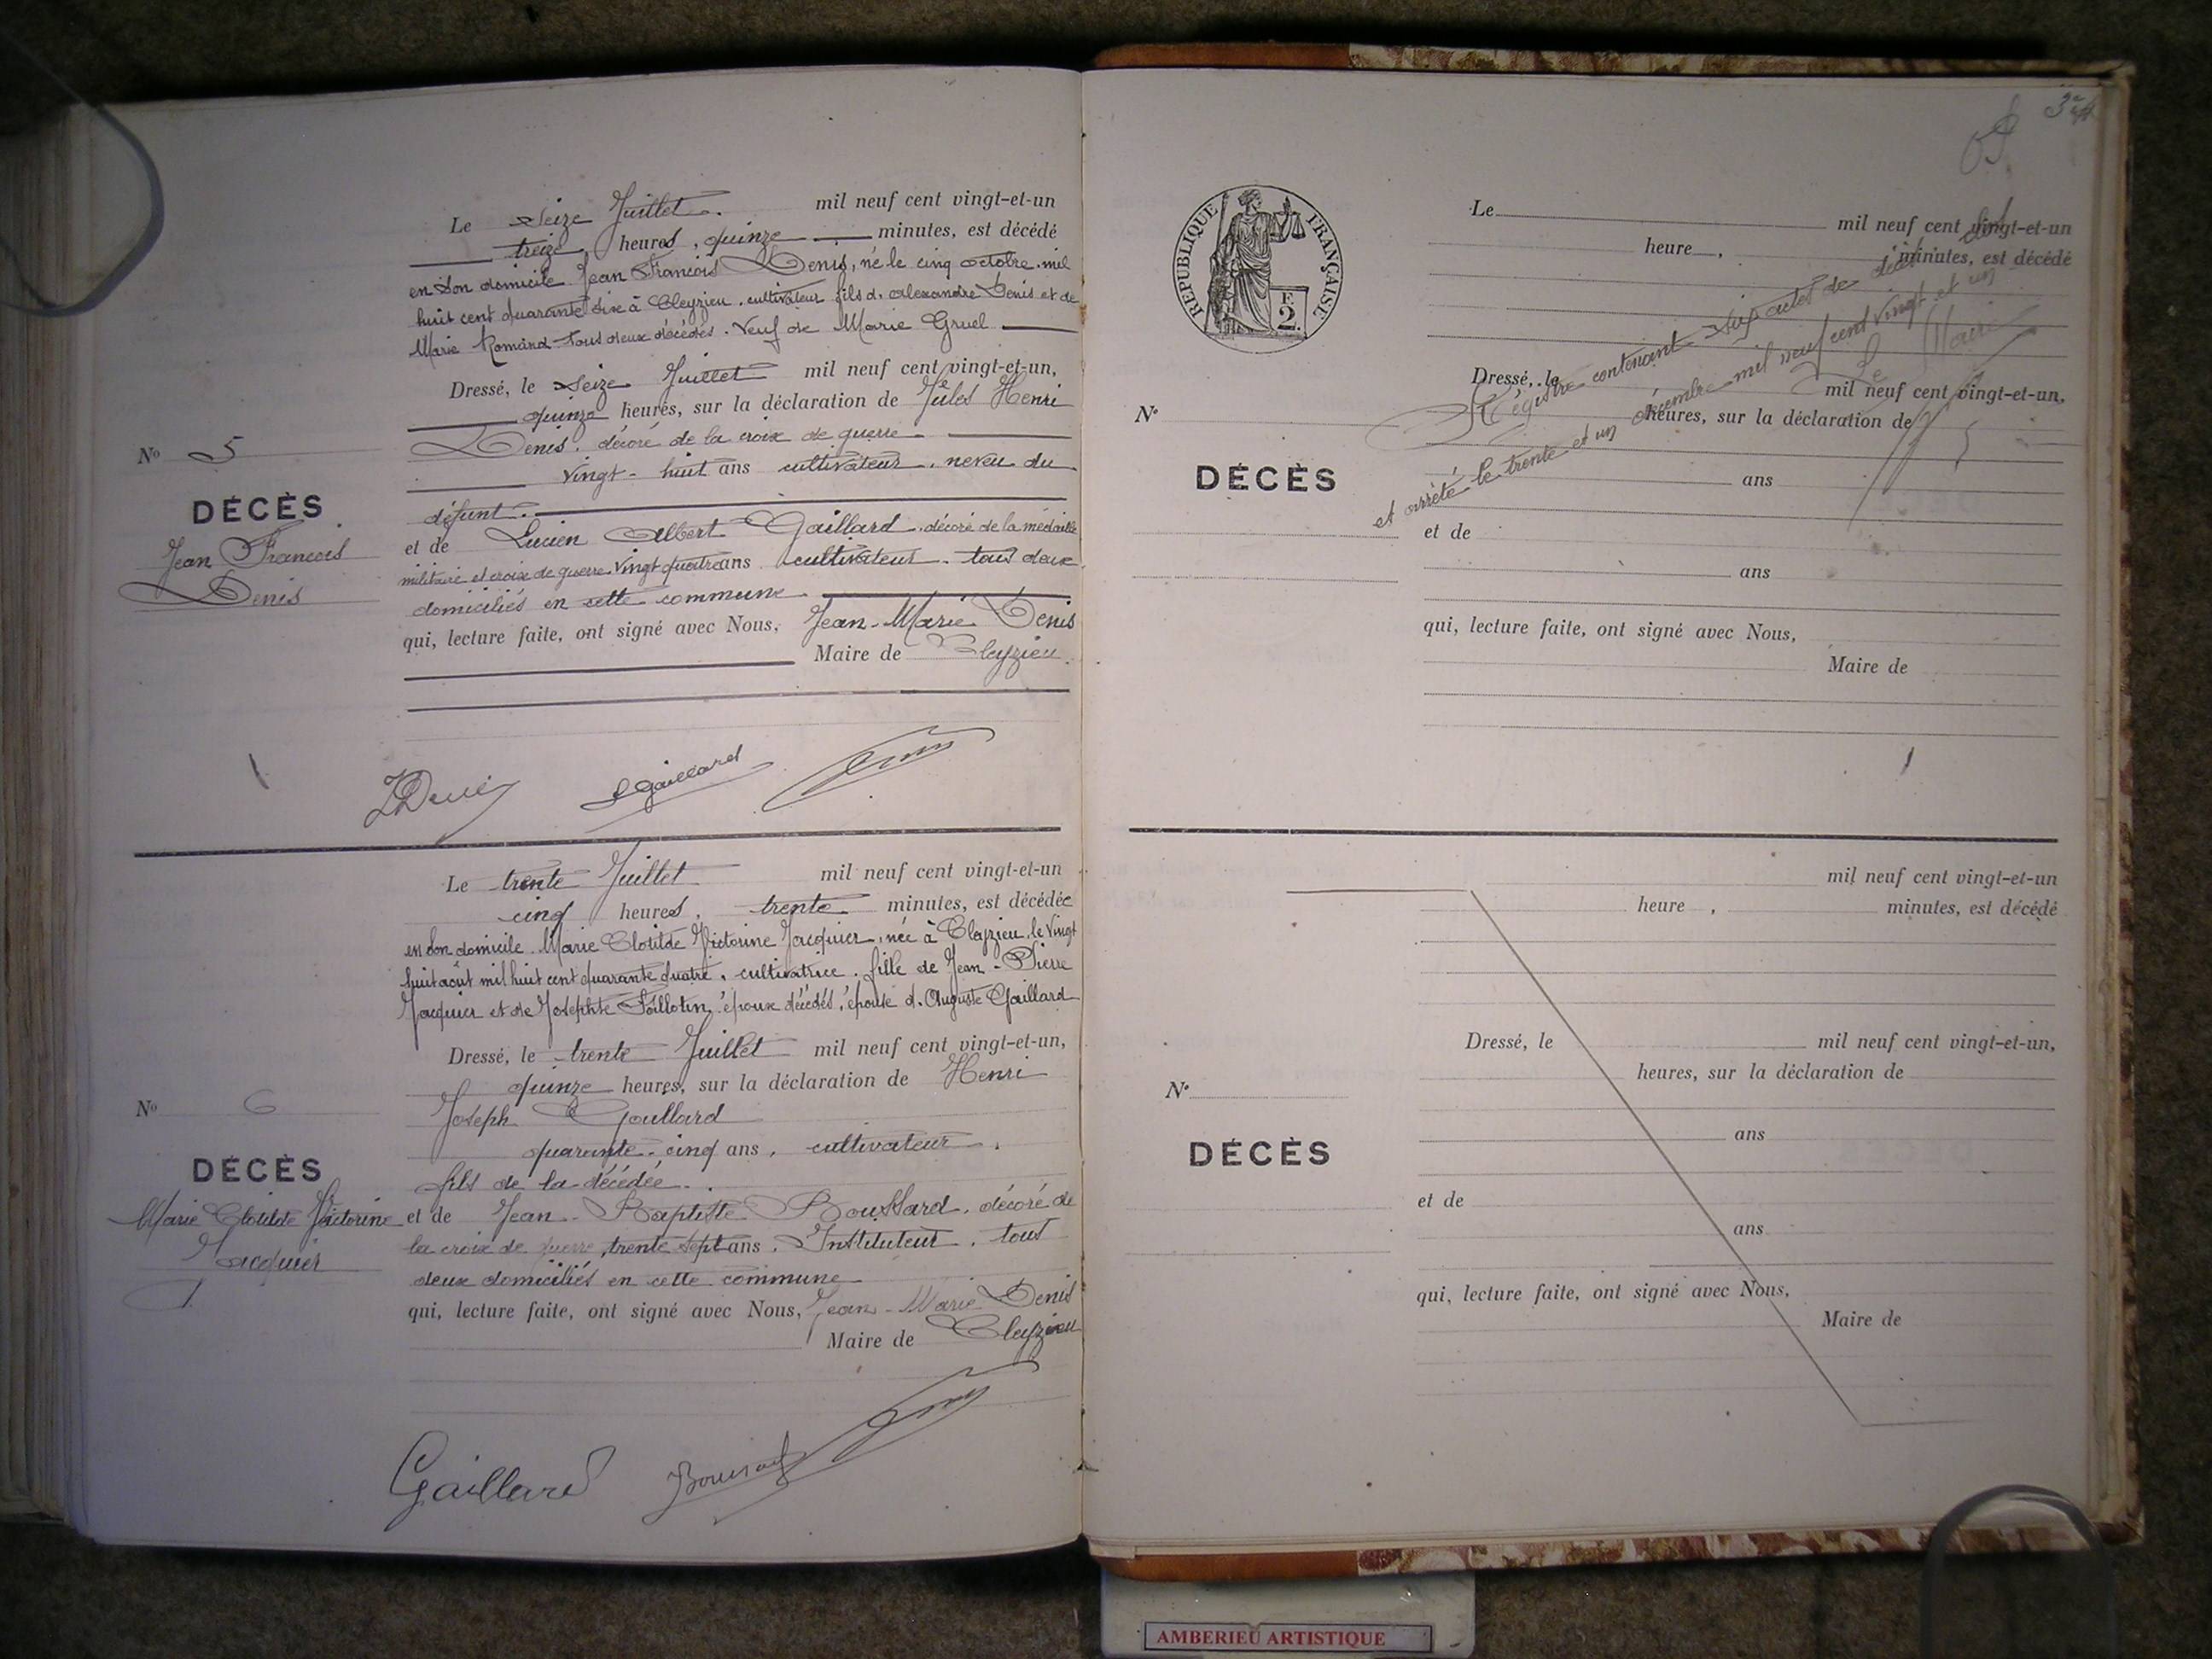 Le seize Juillet. mil neuf cent vingt-et-un
treize heures, quinze minutes, est décédé
en son domicile Jean François Denis, né le cinq octobre mil
huit cent quarante six à Cleyzieu, cultivateur fils d. Alexandre Denis et de
Marie Romand tous deux décédés. Veuf de Marie Gruel
Dressé, le seize Juillet mil neuf cent vingt-et-un,
quinze heures, sur la déclaration de Jules Henri
Denis, décoré de la croix de guerre
vingt-huit ans cultivateur, neveu du
défunt.
et de Lucien Albert Gaillard, décoré de la médaille
militaire et croix de guerre vingt quatre ans cultivateur. tous deux
domiciliés en cette commune
qui, lecture faite, ont signé avec Nous, Jean-Marie Denis
Maire de Cleyzieu.
No 5
DÉCÈS
Jean François
Denis
Denis
L Gaillard
Le trente Juillet mil neuf cent vingt-et-un
cinq heures, trente minutes, est décédée
en son domicile Marie Clotilde Victorine Jacquier, née à Cleyzieu, le vingt
huit août mil huit cent quarante quatre, cultivatrice, fille de Jean-Pierre
Jacquier et de Josephte époux décédés, épouse d. Auguste Gaillard
Dressé, le trente Juillet mil neuf cent vingt-et-un,
quinze heures, sur la déclaration de Henri
Joseph Gaillard
quarante-cinq ans, cultivateur,
fils de la décédée.
et de Jean-Baptiste Boussard, décoré de
la croix de guerre, trente sept ans, Instituteur, tous
deux domiciliés en cette commune
qui, lecture faite, ont signé avec Nous, Jean-Marie Denis
Maire de Cleyzieu
No 6
DÉCÈS
Marie Clotilde Victorine
Jacquier
Gaillard
Boussard
REPUBLIQUE FRANÇAISE
F.
2.
Le mil neuf cent vingt-et-un
heure , minutes, est décédé
Dressé, le mil neuf cent vingt-et-un,
heures, sur la déclaration de
ans
et de
ans
qui, lecture faite, ont signé avec Nous,
Maire de
Nº
DÉCÈS
Registre contenant six actes de décès clos
et arrêté le trente et un décembre mil neuf cent vingt et un
Le Maire
mil neuf cent vingt-et-un
heure , minutes, est décédé
Dressé, le mil neuf cent vingt-et-un,
heures, sur la déclaration de
ans
et de
ans
qui, lecture faite, ont signé avec Nous,
Maire de
Nº
DÉCÈS
AMBERIEU ARTISTIQUE